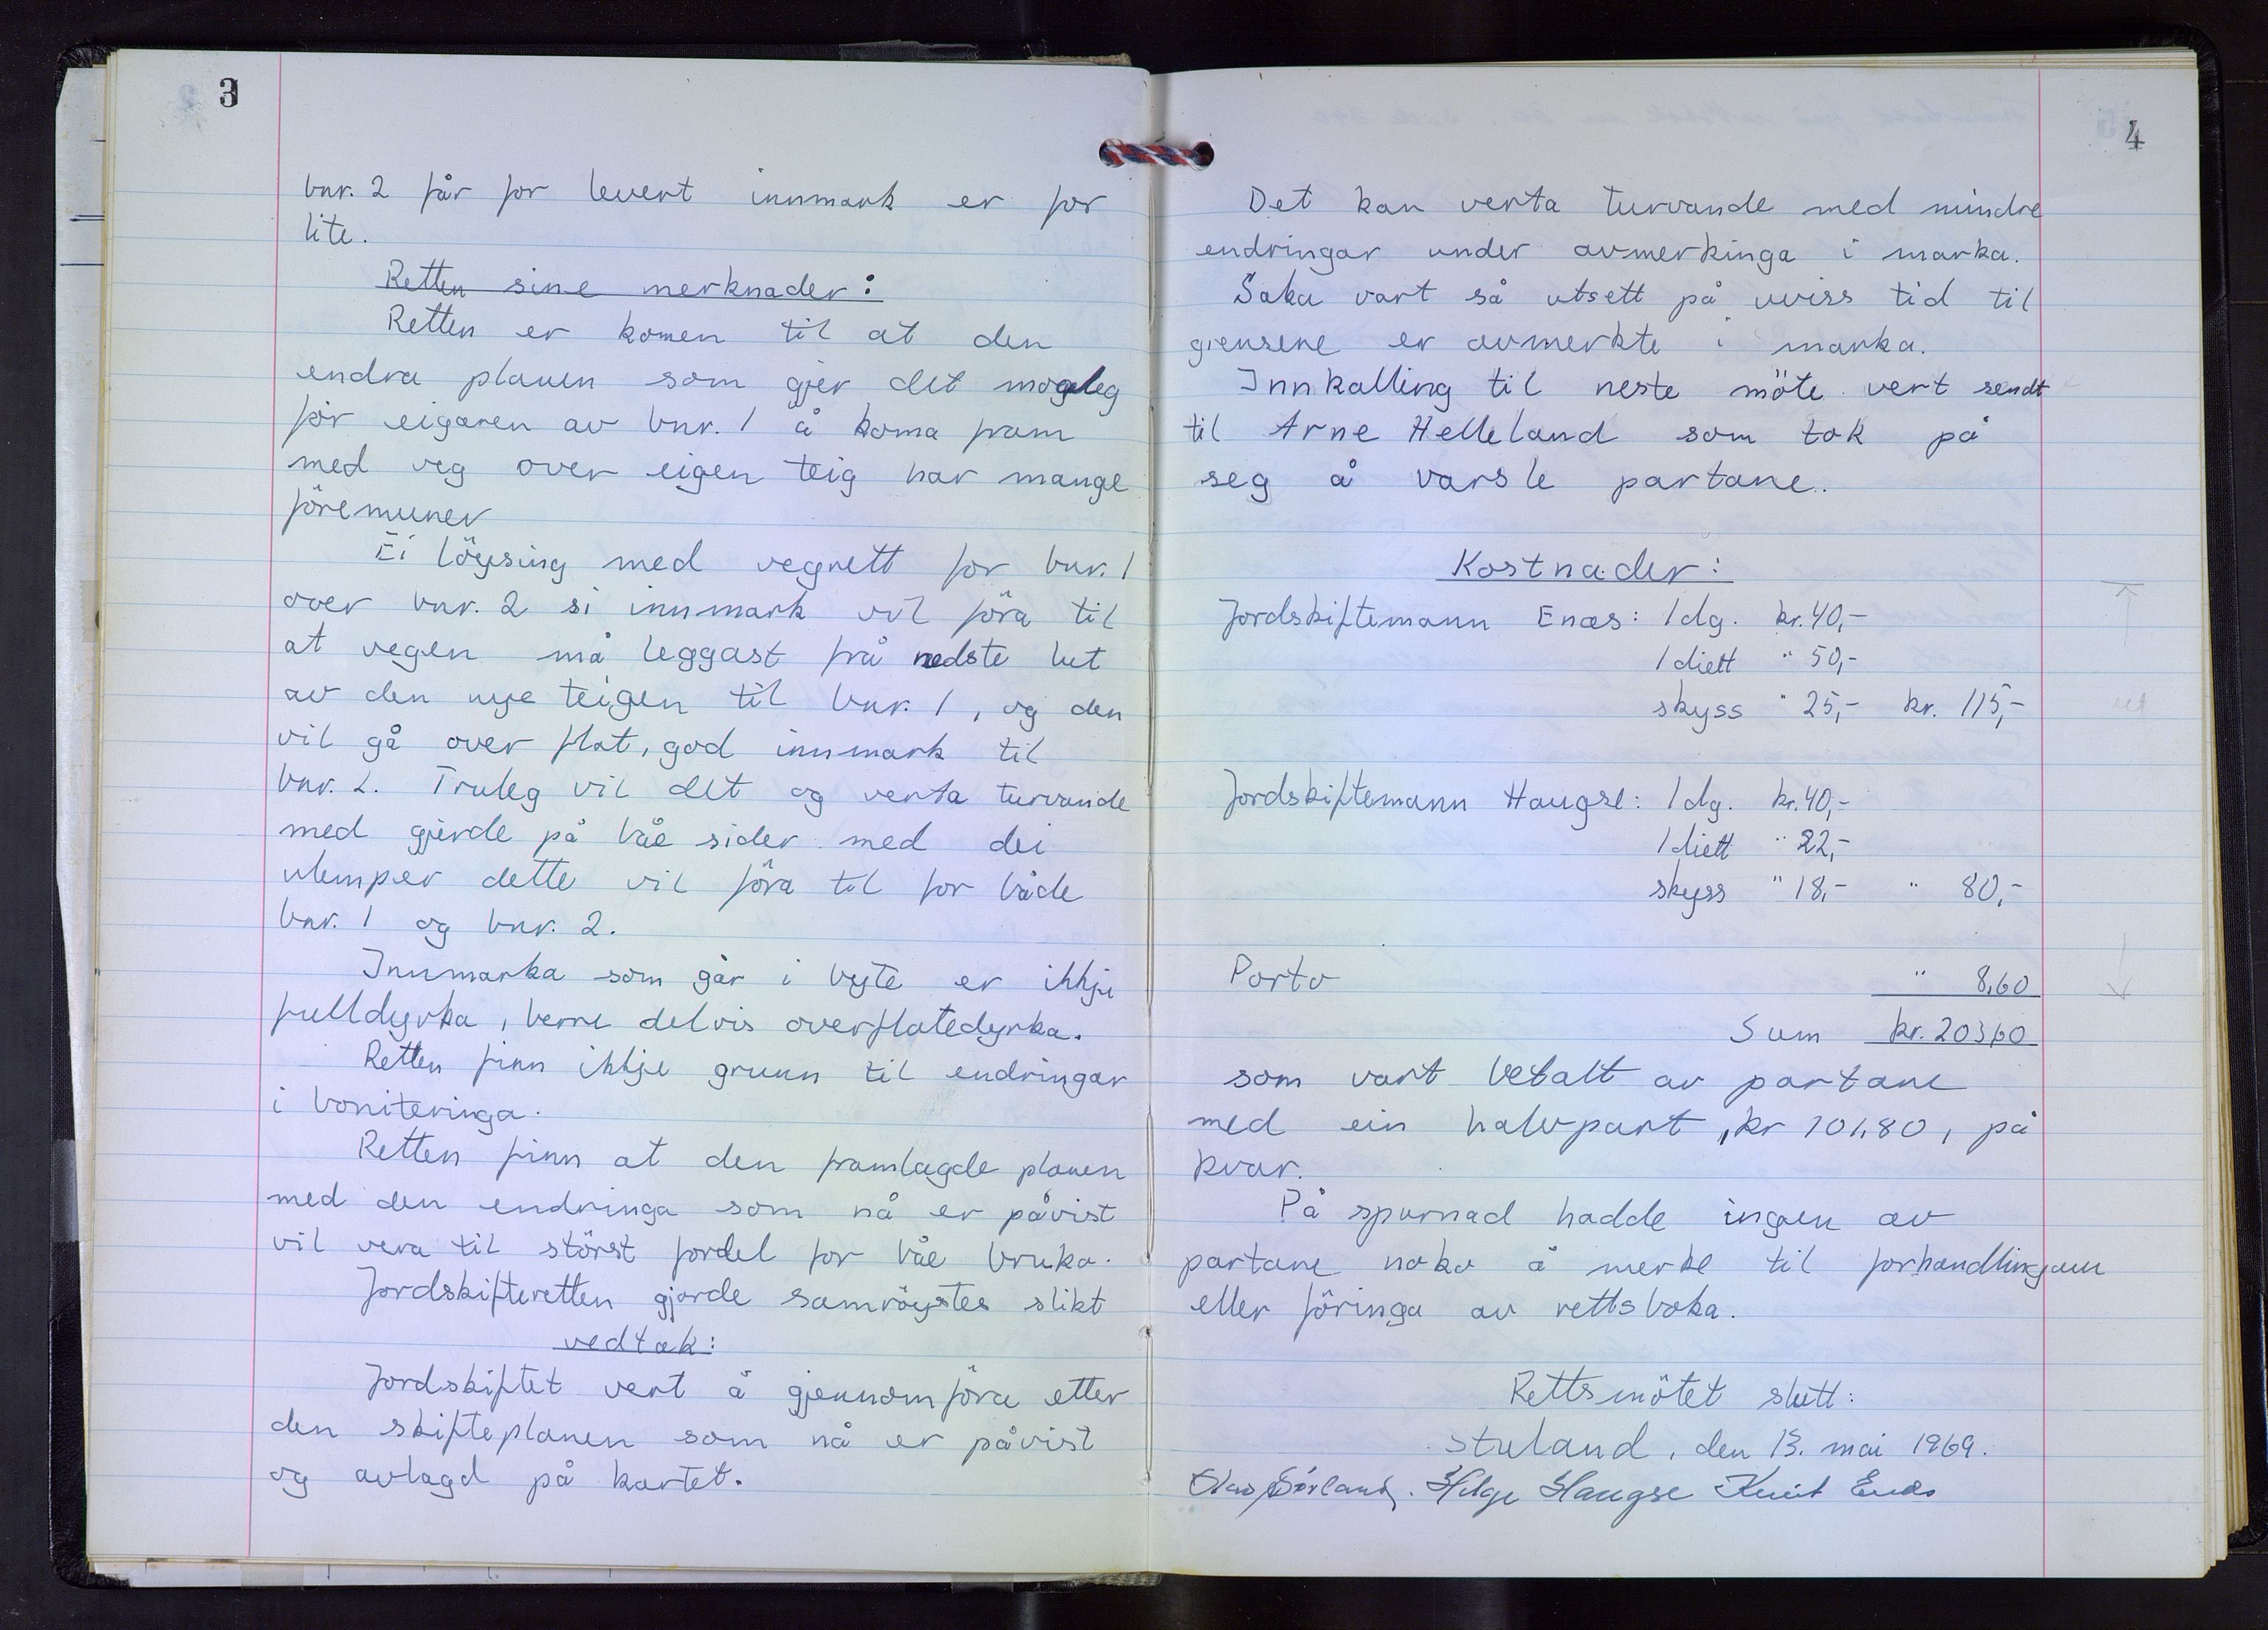 3
bnr. 2 får for levert innmark er for
lite.
Retten sine merknader:
Retten er komen til at den
endra planen som gjer det mogeleg
før eigaren av bnr. 1 å koma fram
med veg over eigen teig har mange
föremuner
Ei löysing med vegrett for bnr. 1
over bnr. 2 si innmark vil föra til
at vegen må leggast frå nedste lut
av den nye teigen til bnr. 1, og den
vil gå over flat, god innmark til
bnr. 2. Truleg vil det og verta turvande
med gjerde på båe sider med dei
ulemper dette vil föra til for både
bnr. 1 og bnr. 2.
Innmarka som går i byte er ikkje
fulldyrka, berre delvis overflatedyrka.
Retten finn ikkje grunn til endringar
i boniteringa.
Retten finn at den framlagde planen
med den endringa som nå er påvist
vil vera til störst fordel for båe bruka.
Jordskifteretten gjorde samröystes slikt
vedtak:
Jordskiftet vert å gjennomföra etter
den skifteplanen som nå er påvist
og avlagd på kartet.
4
Det kan verta turvande med mindre
endringar under avmerkinga i marka.
Saka vart så utsett på uviss tid til
grensene er avmerkte i marka.
Innkalling til neste möte vert sendt
til Arne Helleland som tok på
seg å varsle partane.
Kostnader:
Jordskiftemann Enæs: 1 dg. kr. 40,-
1 diett " 50,-
skyss " 25,- kr. 115,-
Jordskiftemann Haugse: 1 dg. kr. 40,-
1 diett " 22,-
skyss " 18,- " 80,-
Porto " 8,60
Sum kr. 203,60
som vart betalt av partane
med ein halvpart, kr 101,80, på
kvar.
På spurnad hadde ingen av
partane noko å merke til forhandlingane
eller föringa av rettsboka.
Rettsmötet slutt:
Stuland, den 13. mai 1969.
Helge Haugse Knut Enæs